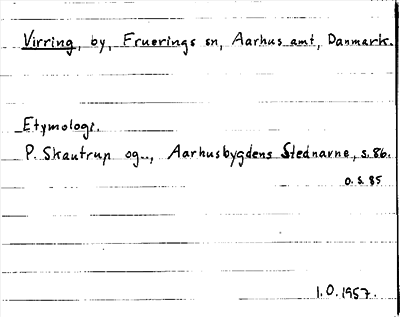 Virring, by, Fruerings sn, Aarhus amt, Danmark.
Etymologi.
P. Skautrup og.., Aarhusbygdens Stednavne, s.86.
o.s.85
1.0.1957.